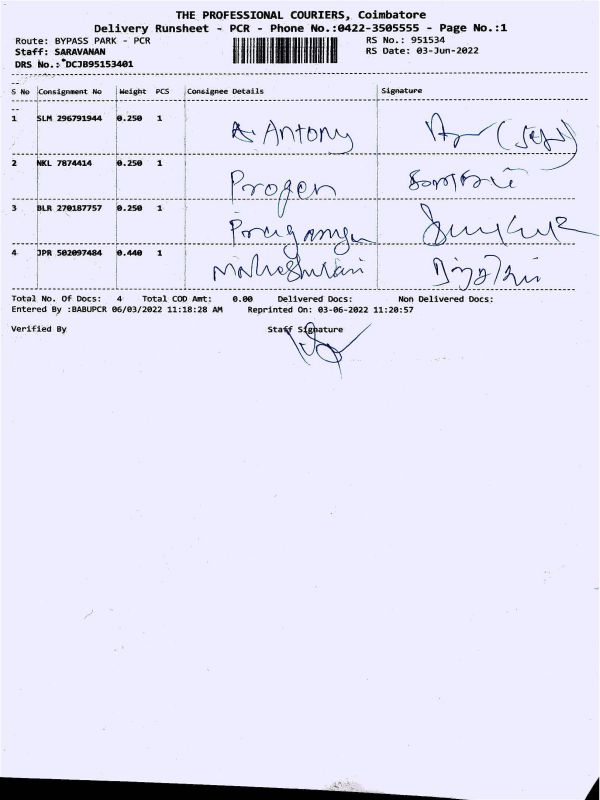 THE PROFESSIONAL COURIERS, Coimbatore
Delivery Runsheet - PCR - Phone No.:0422-3505555 - Page No.:1
Route: BYPASS PARK - PCR RS No.: 951534
Staff: SARAVANAN RS Date: 03-Jun-2022
DRS No.: DCJB95153401
S No Consignment No Weight PCS Consignee Details Signature
1 SLM 296791944 0.250 1 A. Antony
2 NKL 7874414 0.250 1 Progen
3 BLR 270187757 0.250 1
4 JPR 502097484 0.440 1
Total No. Of Docs: 4 Total COD Amt: 0.00 Delivered Docs: Non Delivered Docs:
Entered By :BABUPCR 06/03/2022 11:18:28 AM Reprinted On: 03-06-2022 11:20:57
Verified By Staff Signature